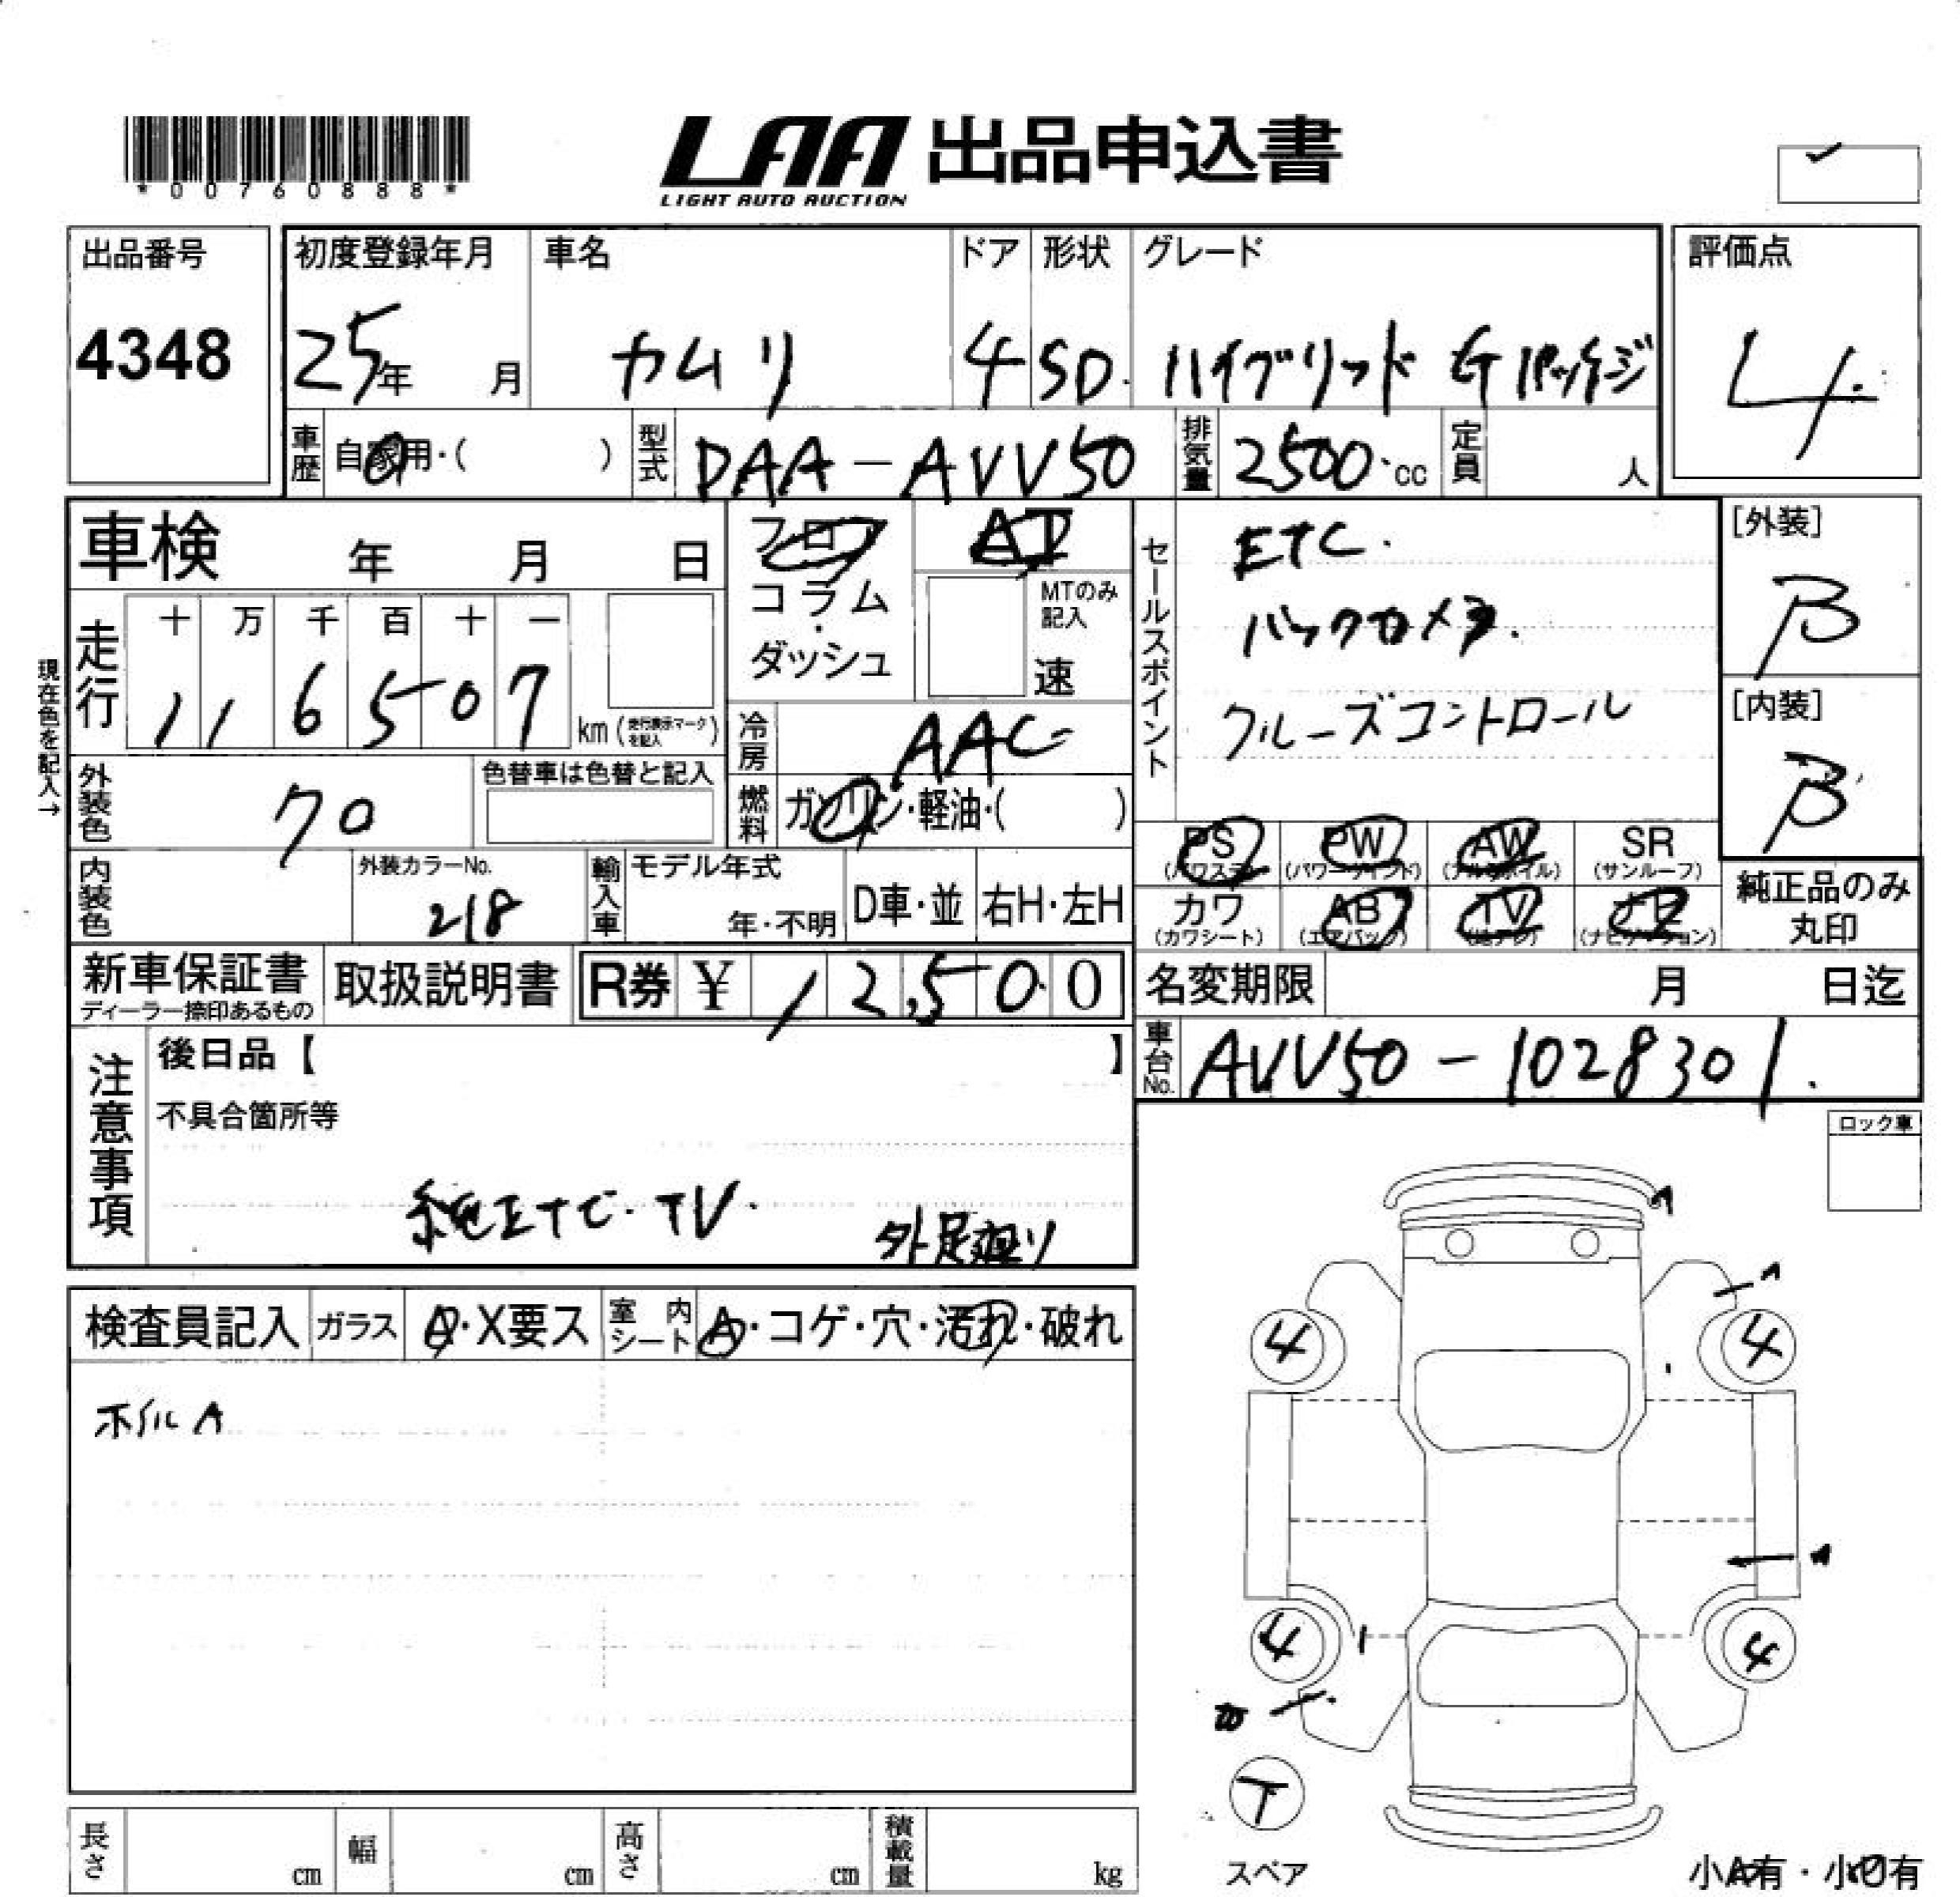 *00760888*
LAA 出品申込書
LIGHT AUTO AUCTION
出品番号
4348
初度登録年月
25年 月
車名
カムリ
ドア
4
形状
SD.
グレード
ハイブリッド Gパッケージ
評価点
4.
車歴
自家用・( )
型式
DAA-AVV50
排気量
2500.cc
定員
人
車検 年 月 日
フロア
コラム
・
ダッシュ
AT
MTのみ
記入
速
セールスポイント
ETC.
バックカメラ.
クルーズコントロール
[外装]
B
[内装]
B
現在色を記入→
走行
十 万 千 百 十 一
1 1 6 5 0 7
km (走行表示マークを記入)
冷房
AAC
燃料
ガソリン・軽油・( )
外装色
クロ
色替車は色替と記入
内装色
外装カラーNo.
218
輸入車
モデル年式
年・不明
D車・並
右H・左H
PS
(パワステ)
PW
(パワーウィンド)
AW
(アルミホイル)
SR
(サンルーフ)
カワ
(カワシート)
AB
(エアバッグ)
TV
(地デジ)
ナビ
(ナビゲーション)
純正品のみ
丸印
新車保証書
ディーラー捺印あるもの
取扱説明書
R券 ¥ 12,500
名変期限 月 日迄
車台No.
AVV50-1028301.
注意事項
後日品【 】
不具合箇所等
純ETC.TV.
外足廻り
ロック車
検査員記入
ガラス
A・X要ス
室内シート
A・コゲ・穴・汚れ・破れ
ホイルA
A
A
4
4
A
4
4
T
スペア
長さ cm
幅 cm
高さ cm
積載量 kg
小A有・小凹有